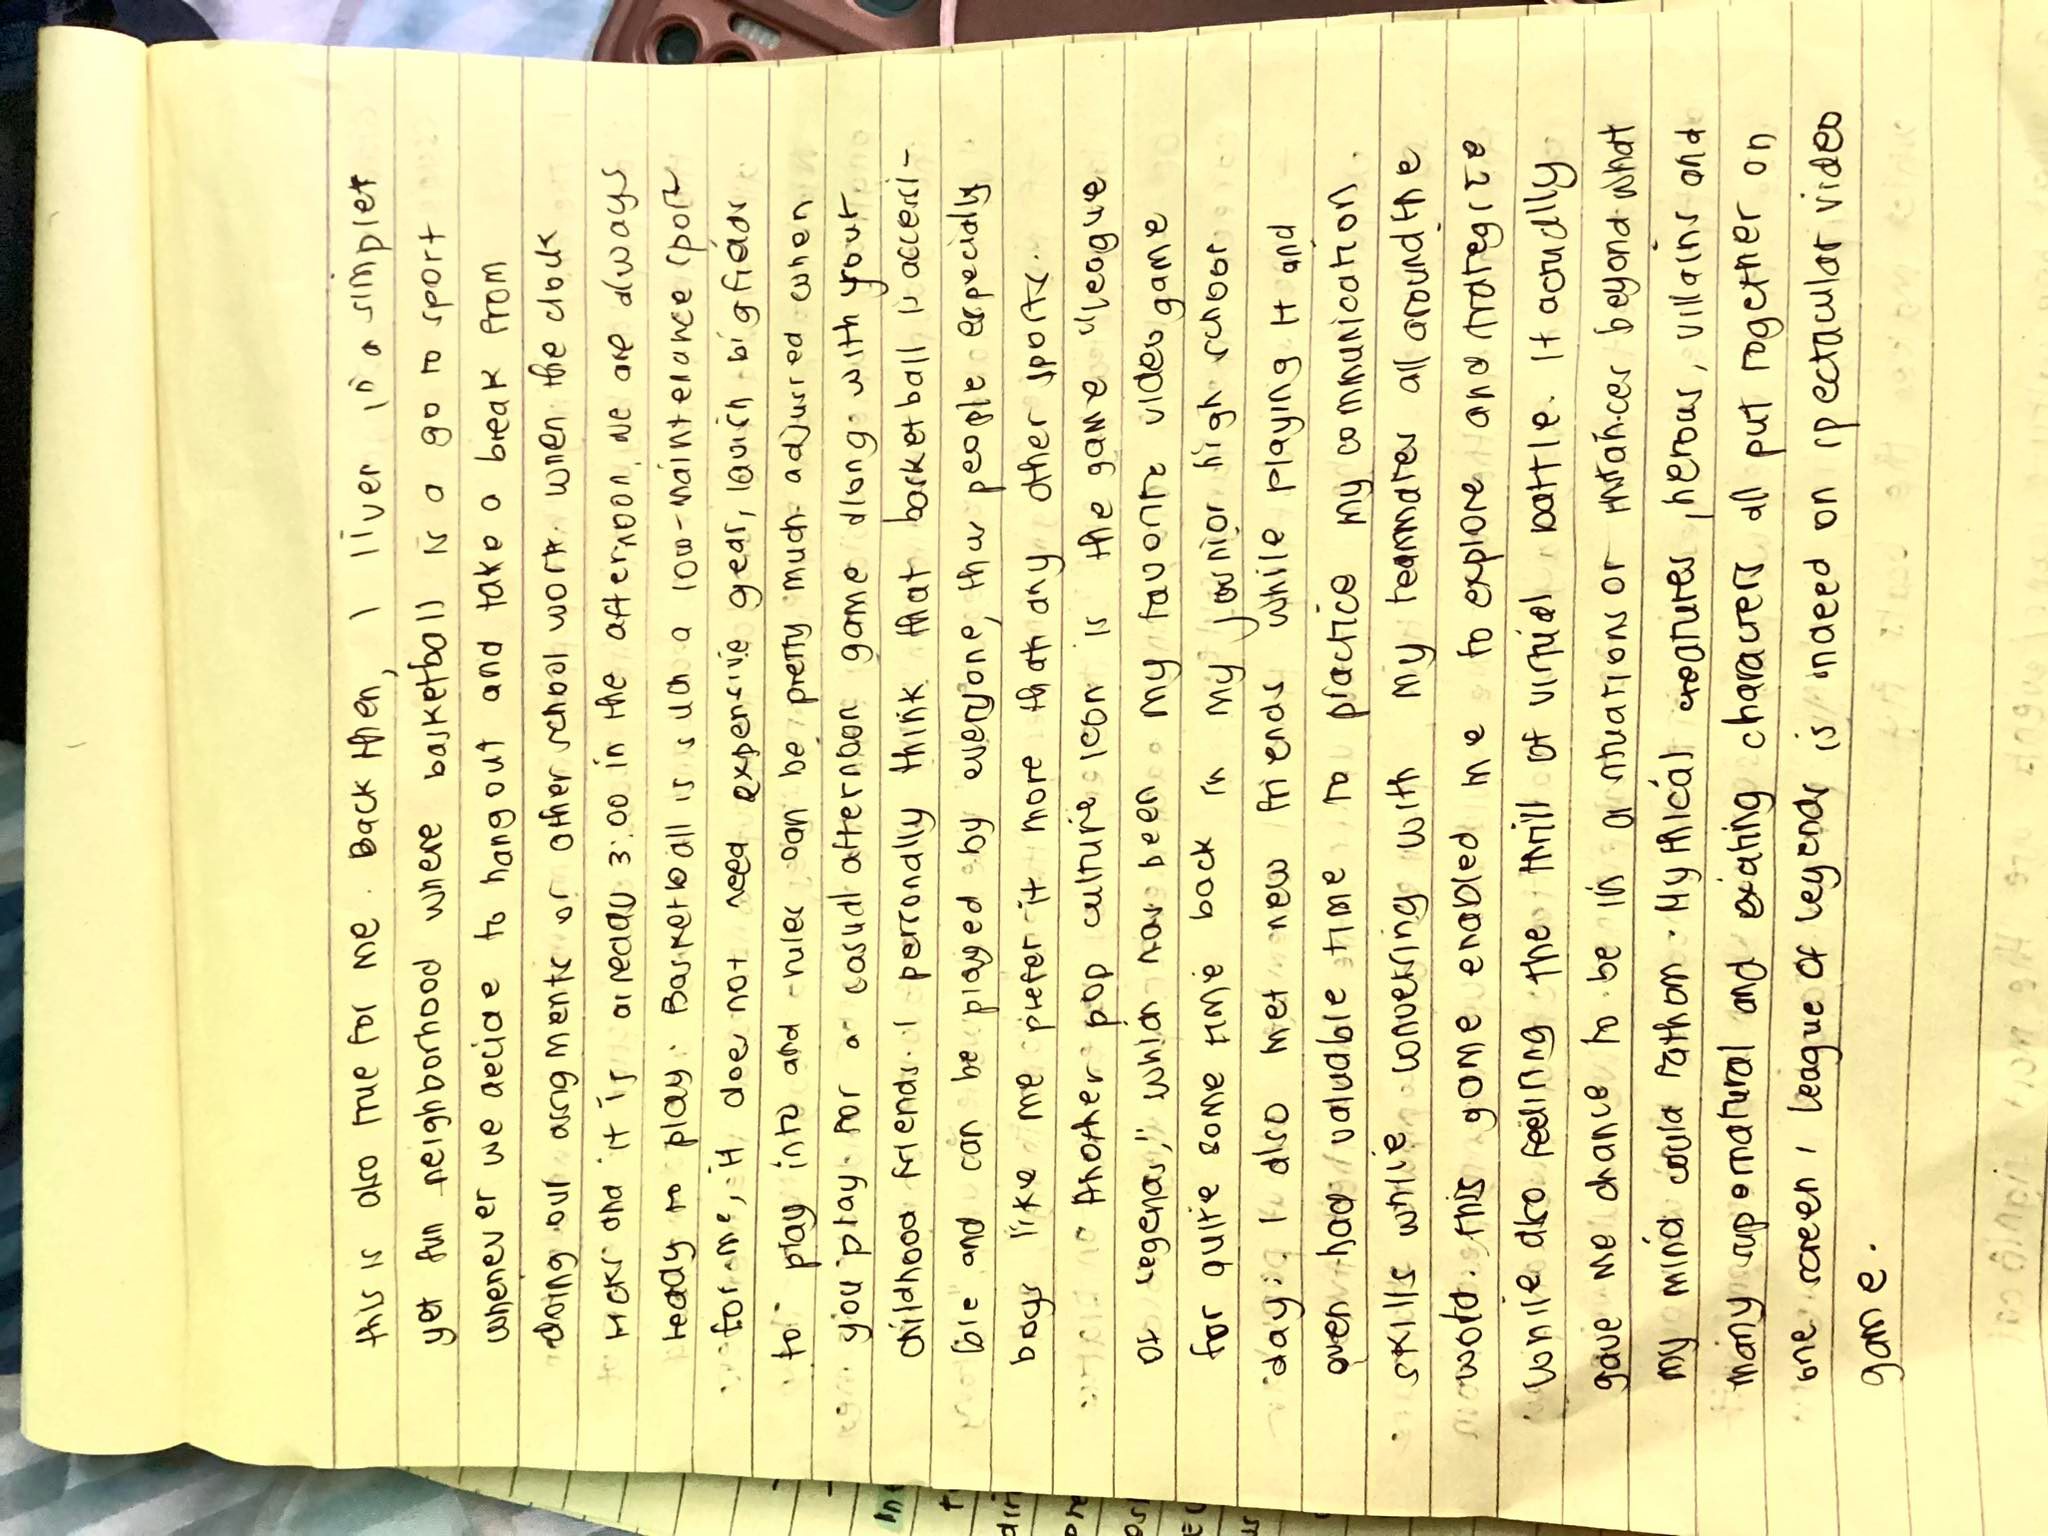 this is also true for me. Back then, I liver in a simple
yet fun neighborhood where basketball is a go to sport
whenever we decide to hangout and take a break from
doing our assigments or other school work. when the clock
ticks and it is already 3:00 in the afternoon, we are always
ready to play. Basketball is such a low-maintenance sport
for me, it does not need expensive gear, lavish big fields
to play into and rules can be pretty much adjusted when
you play for a casual afternoon game along with your
childhood friends. I personally think that basketball is accessi-
ble and can be played by everyone, thus people especially
boys like me prefer it more than any other sports.
Another pop culture icon is the game "league
of legends," which has been my favorite video game
for quite some time back in my jounior high school
day. I also met new friends while playing it and
even had valuable time to practice my communication
skills while conversing with my teammates all around the
world. This game enabled me to explore and strategize
while also feeling the thrill of virtual battle. It actually
gave me chance to be in a situations or instances beyond what
my mind could fathom. Mythical creatures, herous, villains and
many supernatural and exciting characters all put together on
one screen, league of legends is indeed on spectacular video
game.
In